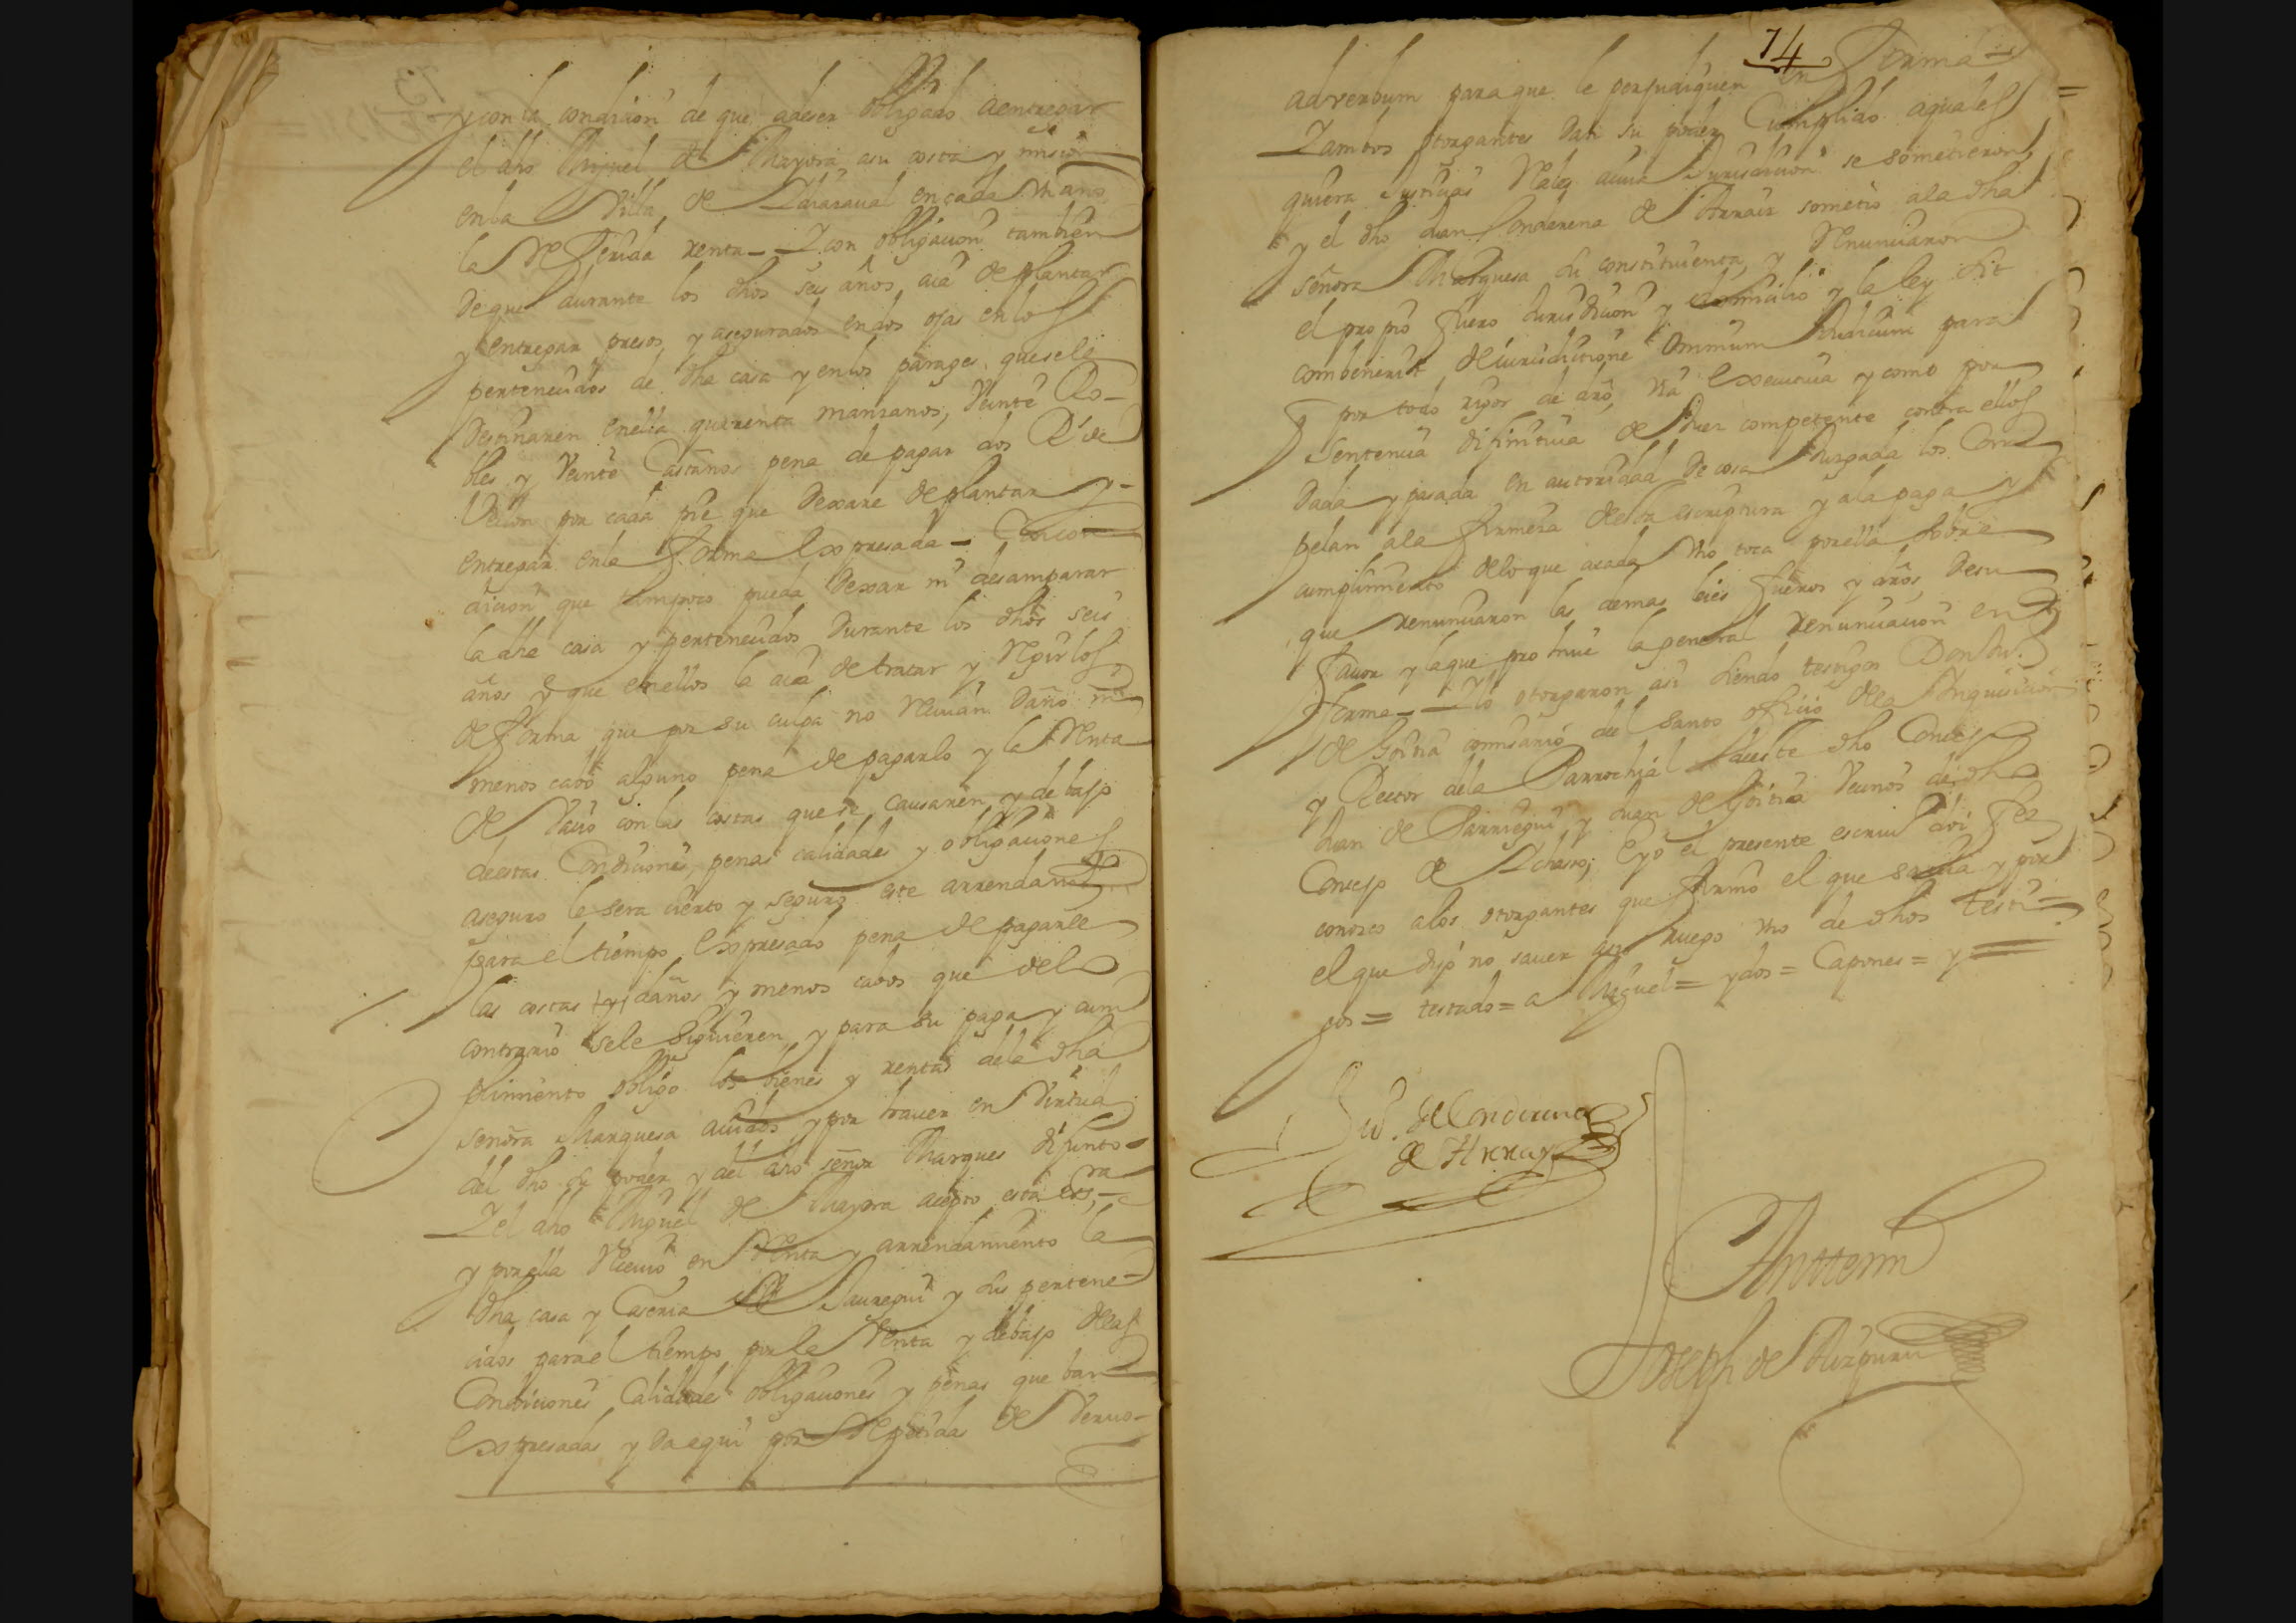 y con la condicion de que adeser obligado aentregar
el dho Miguel de Mayora asu costa y mision
en la Villa de Alcaraval en cada Un año
la Referida renta — Y con obligacion tambien
de que durante los dhos seis años aia de plantar
y entregar presos y asegurados en dos ojas en los
pertenecidos de dha casa y en los parages que se le
destinaren en ella quarenta manzanos, Veinte Ro-
bles y Veinte Castaños pena de pagar dos Rs de
Vellon por cada pie que dexare de plantar y-
entregar en la forma Expresada — Con con
dicion que tampoco pueda dexar ni desamparar
la dha casa y pertenecidos durante los dhos seis
años y que en ellos la aia de tratar y Regir los
de forma que por su culpa no Recivan daño ni
menos cavo alguno pena de pagarlo y la Renta
de Vacio con las costas que se causaren y debajo
de estas Condiciones, penas calidades y obligaciones
aseguro le sera cierto y seguro este arrendam
para el tiempo Expresado pena de pagarle
las costas y daños y menos cavos que del
contrario se le siguieren, y para su paga y cum
plimiento obligo los bienes y rentas de la dha
señora Marquesa avidos y por haver en Virtud
del dho su poder y del dho señor Marques difunto-
Y el dho Miguel de Mayora acepto esta esra
y por ella Recivio en Renta y arrendamiento la
dha casa y Caseria de Jauregui y sus pertene-
cidos para el tiempo por la Renta y debajo de las
Condiciones Calidades obligaciones y penas que ban
Expresadas y da aqui por Repetidas de Vervo-
74
ad verbum para que le perjudiquen en forma —
Y ambos otorgantes dan su poder Cumplido aquales
quiera Justicias Rales a cuia Jurisdicion se sometieron
y el dho Juan Londerena de Arraiz sometio a la dha
señora Marquesa su constituienta, y Renunciaron
el propio fuero Jurisdicion y domicilio y la ley sit
combenerit de iurisdictione omnium Judicum para
q por todo rigor de dro, via Executiva y como por
sentencia difinitiva de Juez competente contra ellos
dada y pasada en autoridad de cosa Juzgada los Com
pelan a la firmeza desta escriptura y a la paga y
cumplimiento de lo que acada Uno toca por ella sobre
que renunciaron las demas leies fueros y dros de su
favor y la que prohive la general renunciacion en
forma — Y lo otorgaron asi siendo testigos Don
de Goitia comisario del santo oficio de la Inquisicion
y Rector de la Parrochial deeste dho Concejo
Juan de Sarriegui y Juan de Goitia Vecinos de dho
Concejo de; E yo el presente escrivo doi fee
conozco a los otorgantes que firmo el que savia y por
el que dijo no saver asu ruego Uno de dhos testi=
gos = testado = a Miguel = y dos = Capones = y
de Londerena
de Arraiz
Ante mi
Joseph de Aizpuru